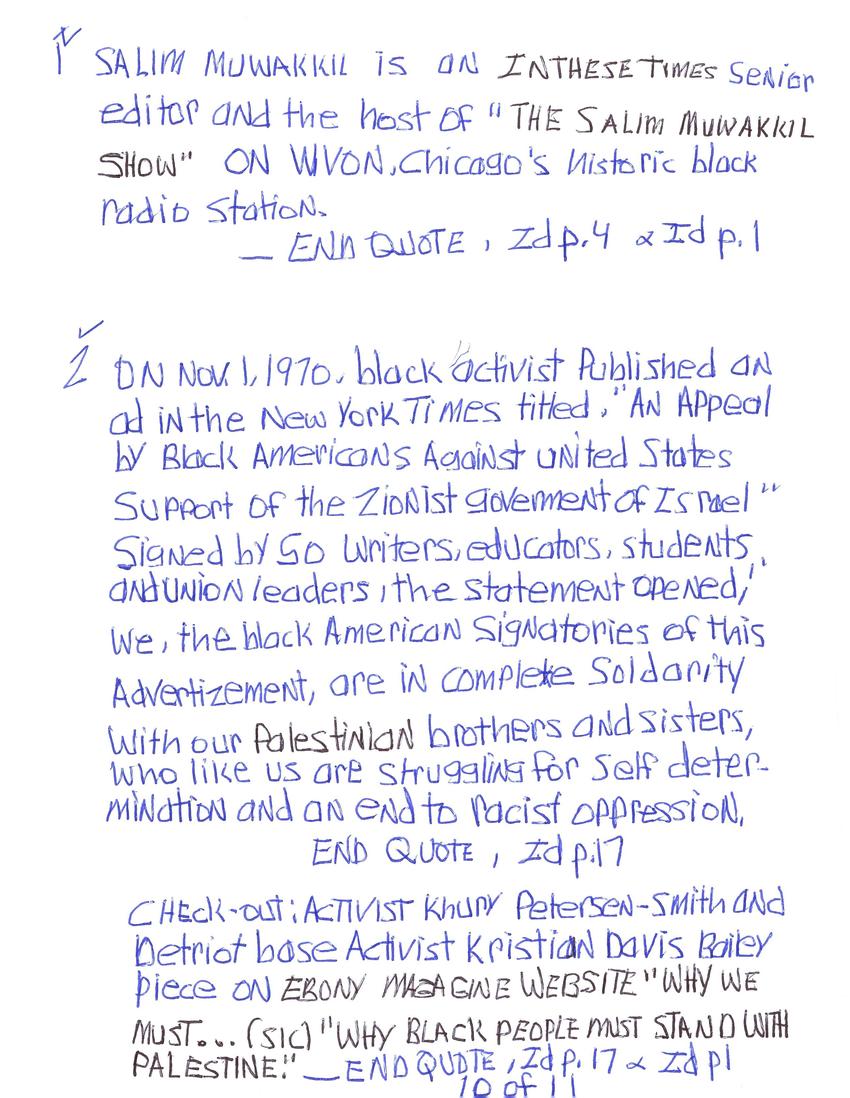 1 SALIM MUWAKKIL is an INTHESETIMES Senior
editor and the host of "THE SALIM MUWAKKIL
SHOW" ON WVON, Chicago's historic black
radio station.
— END QUOTE, Id p.4 & Id p.1
2 ON Nov. 1, 1970, black activist Published an
ad in the New York Times titled, "AN Appeal
by Black Americans Against united States
Support of the Zionist goverment of Israel"
Signed by 50 writers, educators, students,
and union leaders, the statement opened, "
We, the black American Signatories of this
Advertizement, are in complete Soldarity
With our Palestinian brothers and sisters,
who like us are struggling for Self deter-
mination and an end to racist oppression,
END QUOTE, Id p.17
CHEck-out: ACTIVIST Khury Petersen-Smith and
Detriot base Activist Kristian Davis Bailey
piece on EBONY MAGAGINE WEBSITE "WHY WE
MUST... (sic) "WHY BLACK PEOPLE MUST STAND WITH
PALESTINE." — END QUOTE, Id p.17 & Id p1
10 of 11